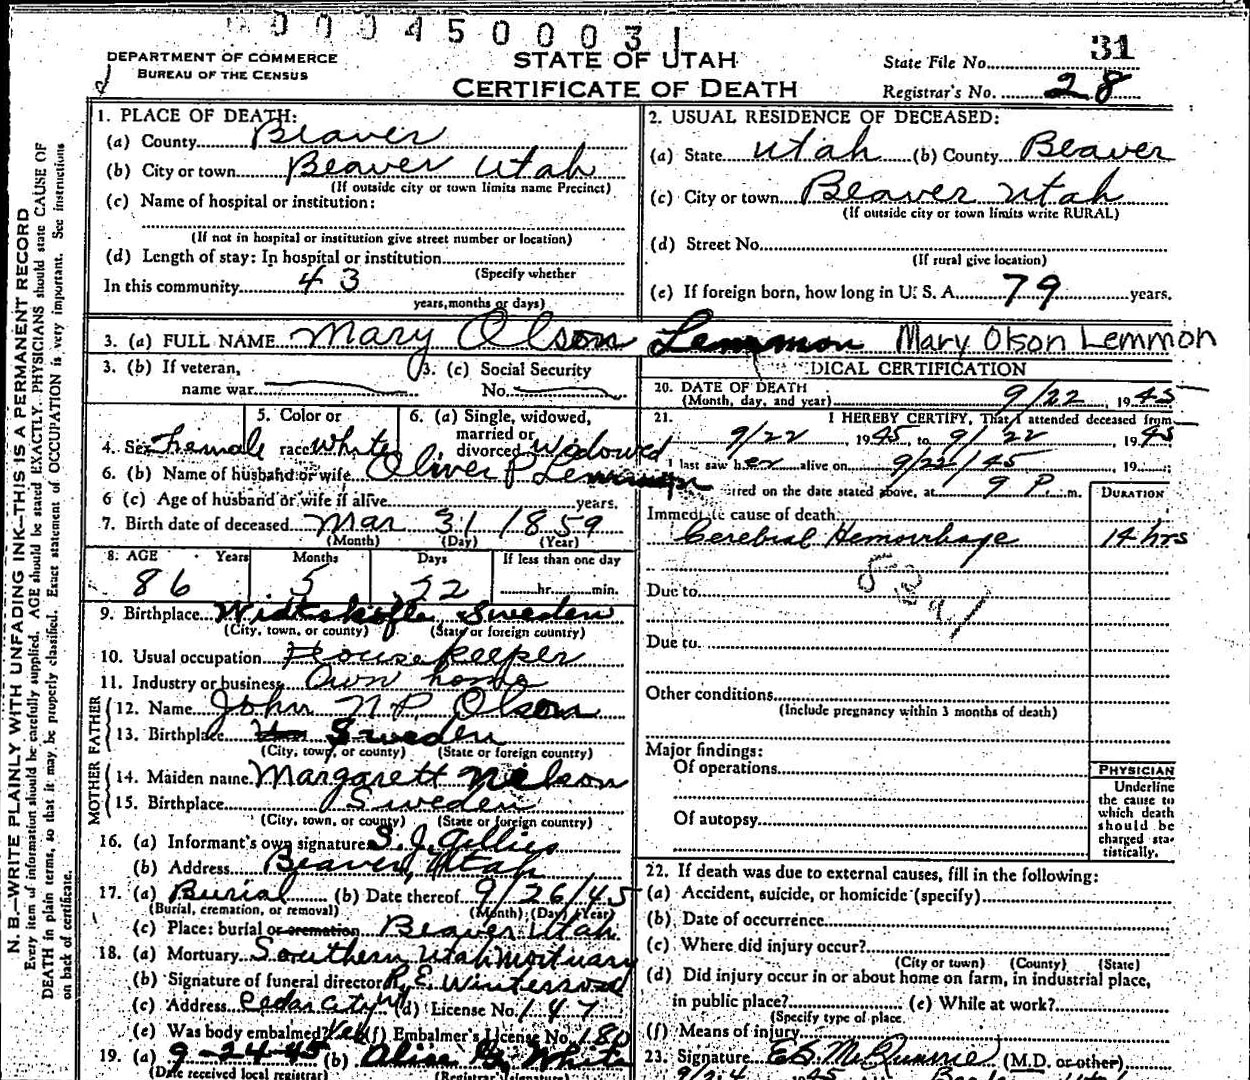 0000450003 1
DEPARTMENT OF COMMERCE
BUREAU OF THE CENSUS
STATE OF UTAH
CERTIFICATE OF DEATH
31
State File No.
Registrar's No. 28
N. B.—WRITE PLAINLY WITH UNFADING INK—THIS IS A PERMANENT RECORD
Every item of information should be carefully supplied. AGE should be stated EXACTLY. PHYSICIANS should state CAUSE OF
DEATH in plain terms, so that it may be properly classified. Exact statement of OCCUPATION is very important. See instructions
on back of certificate.
1. PLACE OF DEATH:
(a) County Beaver
(b) City or town Beaver Utah
(If outside city or town limits name Precinct)
(c) Name of hospital or institution:
(If not in hospital or institution give street number or location)
(d) Length of stay: In hospital or institution
(Specify whether
In this community 43
years, months or days)
2. USUAL RESIDENCE OF DECEASED:
(a) State Utah (b) County Beaver
(c) City or town Beaver Utah
(If outside city or town limits write RURAL)
(d) Street No.
(If rural give location)
(e) If foreign born, how long in U. S. A. 79 years.
3. (a) FULL NAME Mary Olson Lemmon Mary Olson Lemmon
3. (b) If veteran,
name war
3. (c) Social Security
No.
4. Sex Female
5. Color or
race White
6. (a) Single, widowed,
married or
divorced Widowed
6. (b) Name of husband or wife Oliver P Lemmon
6 (c) Age of husband or wife if alive years.
7. Birth date of deceased Mar 31 1859
(Month) (Day) (Year)
8. AGE Years Months Days If less than one day
86 5 22 hr. min.
9. Birthplace Sweden
(City, town, or county) (State or foreign country)
10. Usual occupation Housekeeper
11. Industry or business Own home
FATHER
12. Name John N P. Olson
13. Birthplace Sweden
(City, town, or county) (State or foreign country)
MOTHER
14. Maiden name Margarett Nelson
15. Birthplace Sweden
(City, town, or county) (State or foreign country)
16. (a) Informant's own signature S. J. Gillies
(b) Address Beaver, Utah
17. (a) Burial (b) Date thereof 9/26/45
(Burial, cremation, or removal) (Month) (Day) (Year)
(c) Place: burial or cremation Beaver Utah
18. (a) Mortuary Southern Utah Mortuary
(b) Signature of funeral director R. E. Winterrose
(c) Address Cedar City Ut (d) License No. 147
(e) Was body embalmed? Yes (f) Embalmer's License No. 180
19. (a) 9-24-45 (b) Alise G. White
(Date received local registrar) (Registrar's signature)
DICAL CERTIFICATION
20. DATE OF DEATH
(Month, day, and year) 9/22, 1945
21. I HEREBY CERTIFY, That I attended deceased from
9/22, 1945, to 9/22, 1945
I last saw her alive on 9/22/45, 19
rred on the date stated above, at 9 P. m.
DURATION
Immediate cause of death
Cerebral Hemorrhage 14 hrs
Due to
Due to
Other conditions
(Include pregnancy within 3 months of death)
Major findings:
Of operations
Of autopsy
PHYSICIAN
Underline
the cause to
which death
should be
charged sta-
tistically.
22. If death was due to external causes, fill in the following:
(a) Accident, suicide, or homicide (specify)
(b) Date of occurrence
(c) Where did injury occur?
(City or town) (County) (State)
(d) Did injury occur in or about home on farm, in industrial place,
in public place? (e) While at work?
(Specify type of place
(f) Means of injury
23. Signature (M.D. or other)
9/24 1945